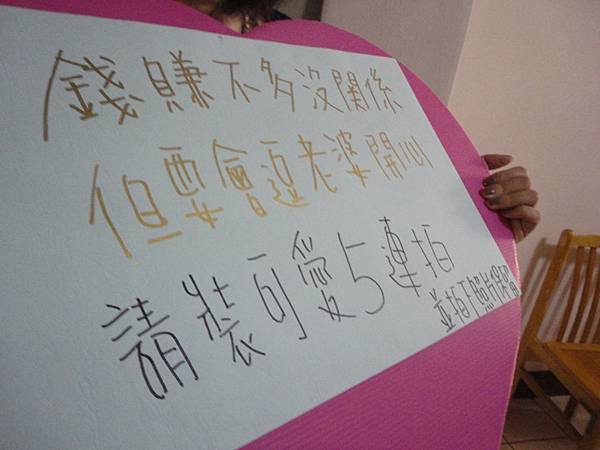 錢賺不多沒關係
但要會逗老婆開心
請裝可愛5連拍
並拍下照片保留